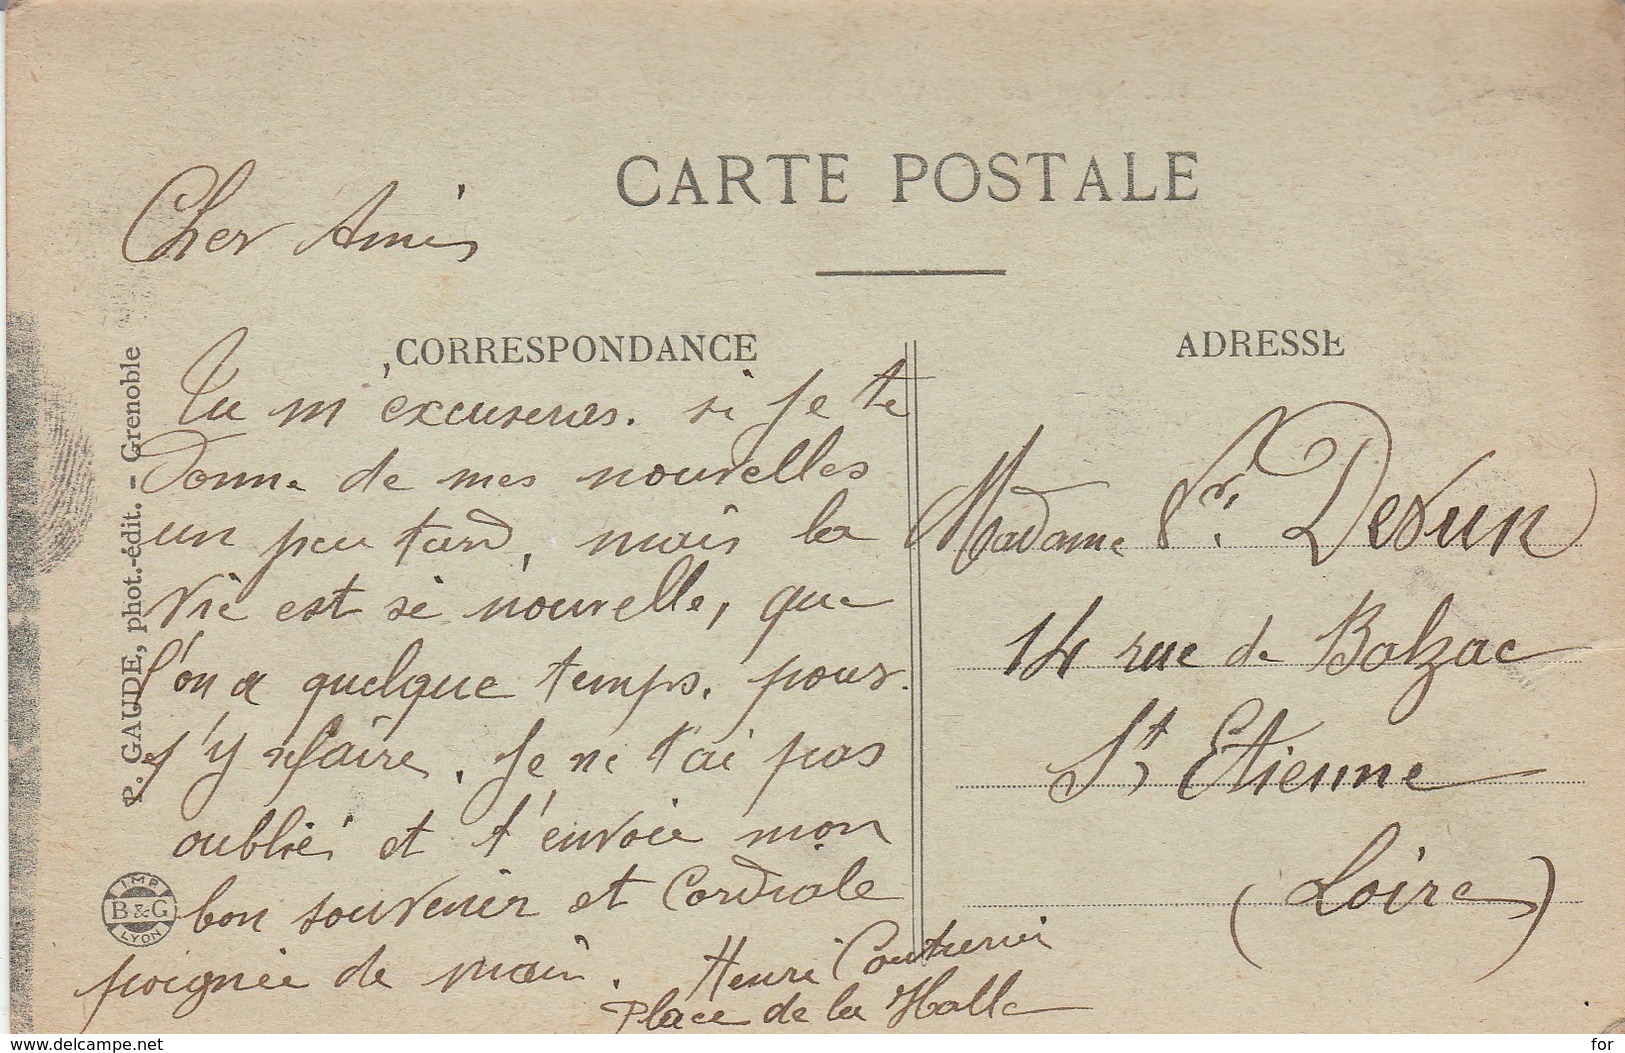 CARTE POSTALE
Cher Amis
CORRESPONDANCE
Tu m'excuseras. si je te
donne de mes nouvelles
un peu tard, mais la
vie est si nouvelle, que
l'on a quelque temps. pour
s'y faire. Je ne t'ai pas
oublié et t'envoie mon
bon souvenir et Cordiale
poignée de main.
Henri Couturier
Place de la Halle
ADRESSE
Madame Devun
14 rue de Balzac
St Etienne
(Loire)
P. GAUDE, phot.-édit. - Grenoble
IMP.
B&G
LYON
www.delcampe.net
for